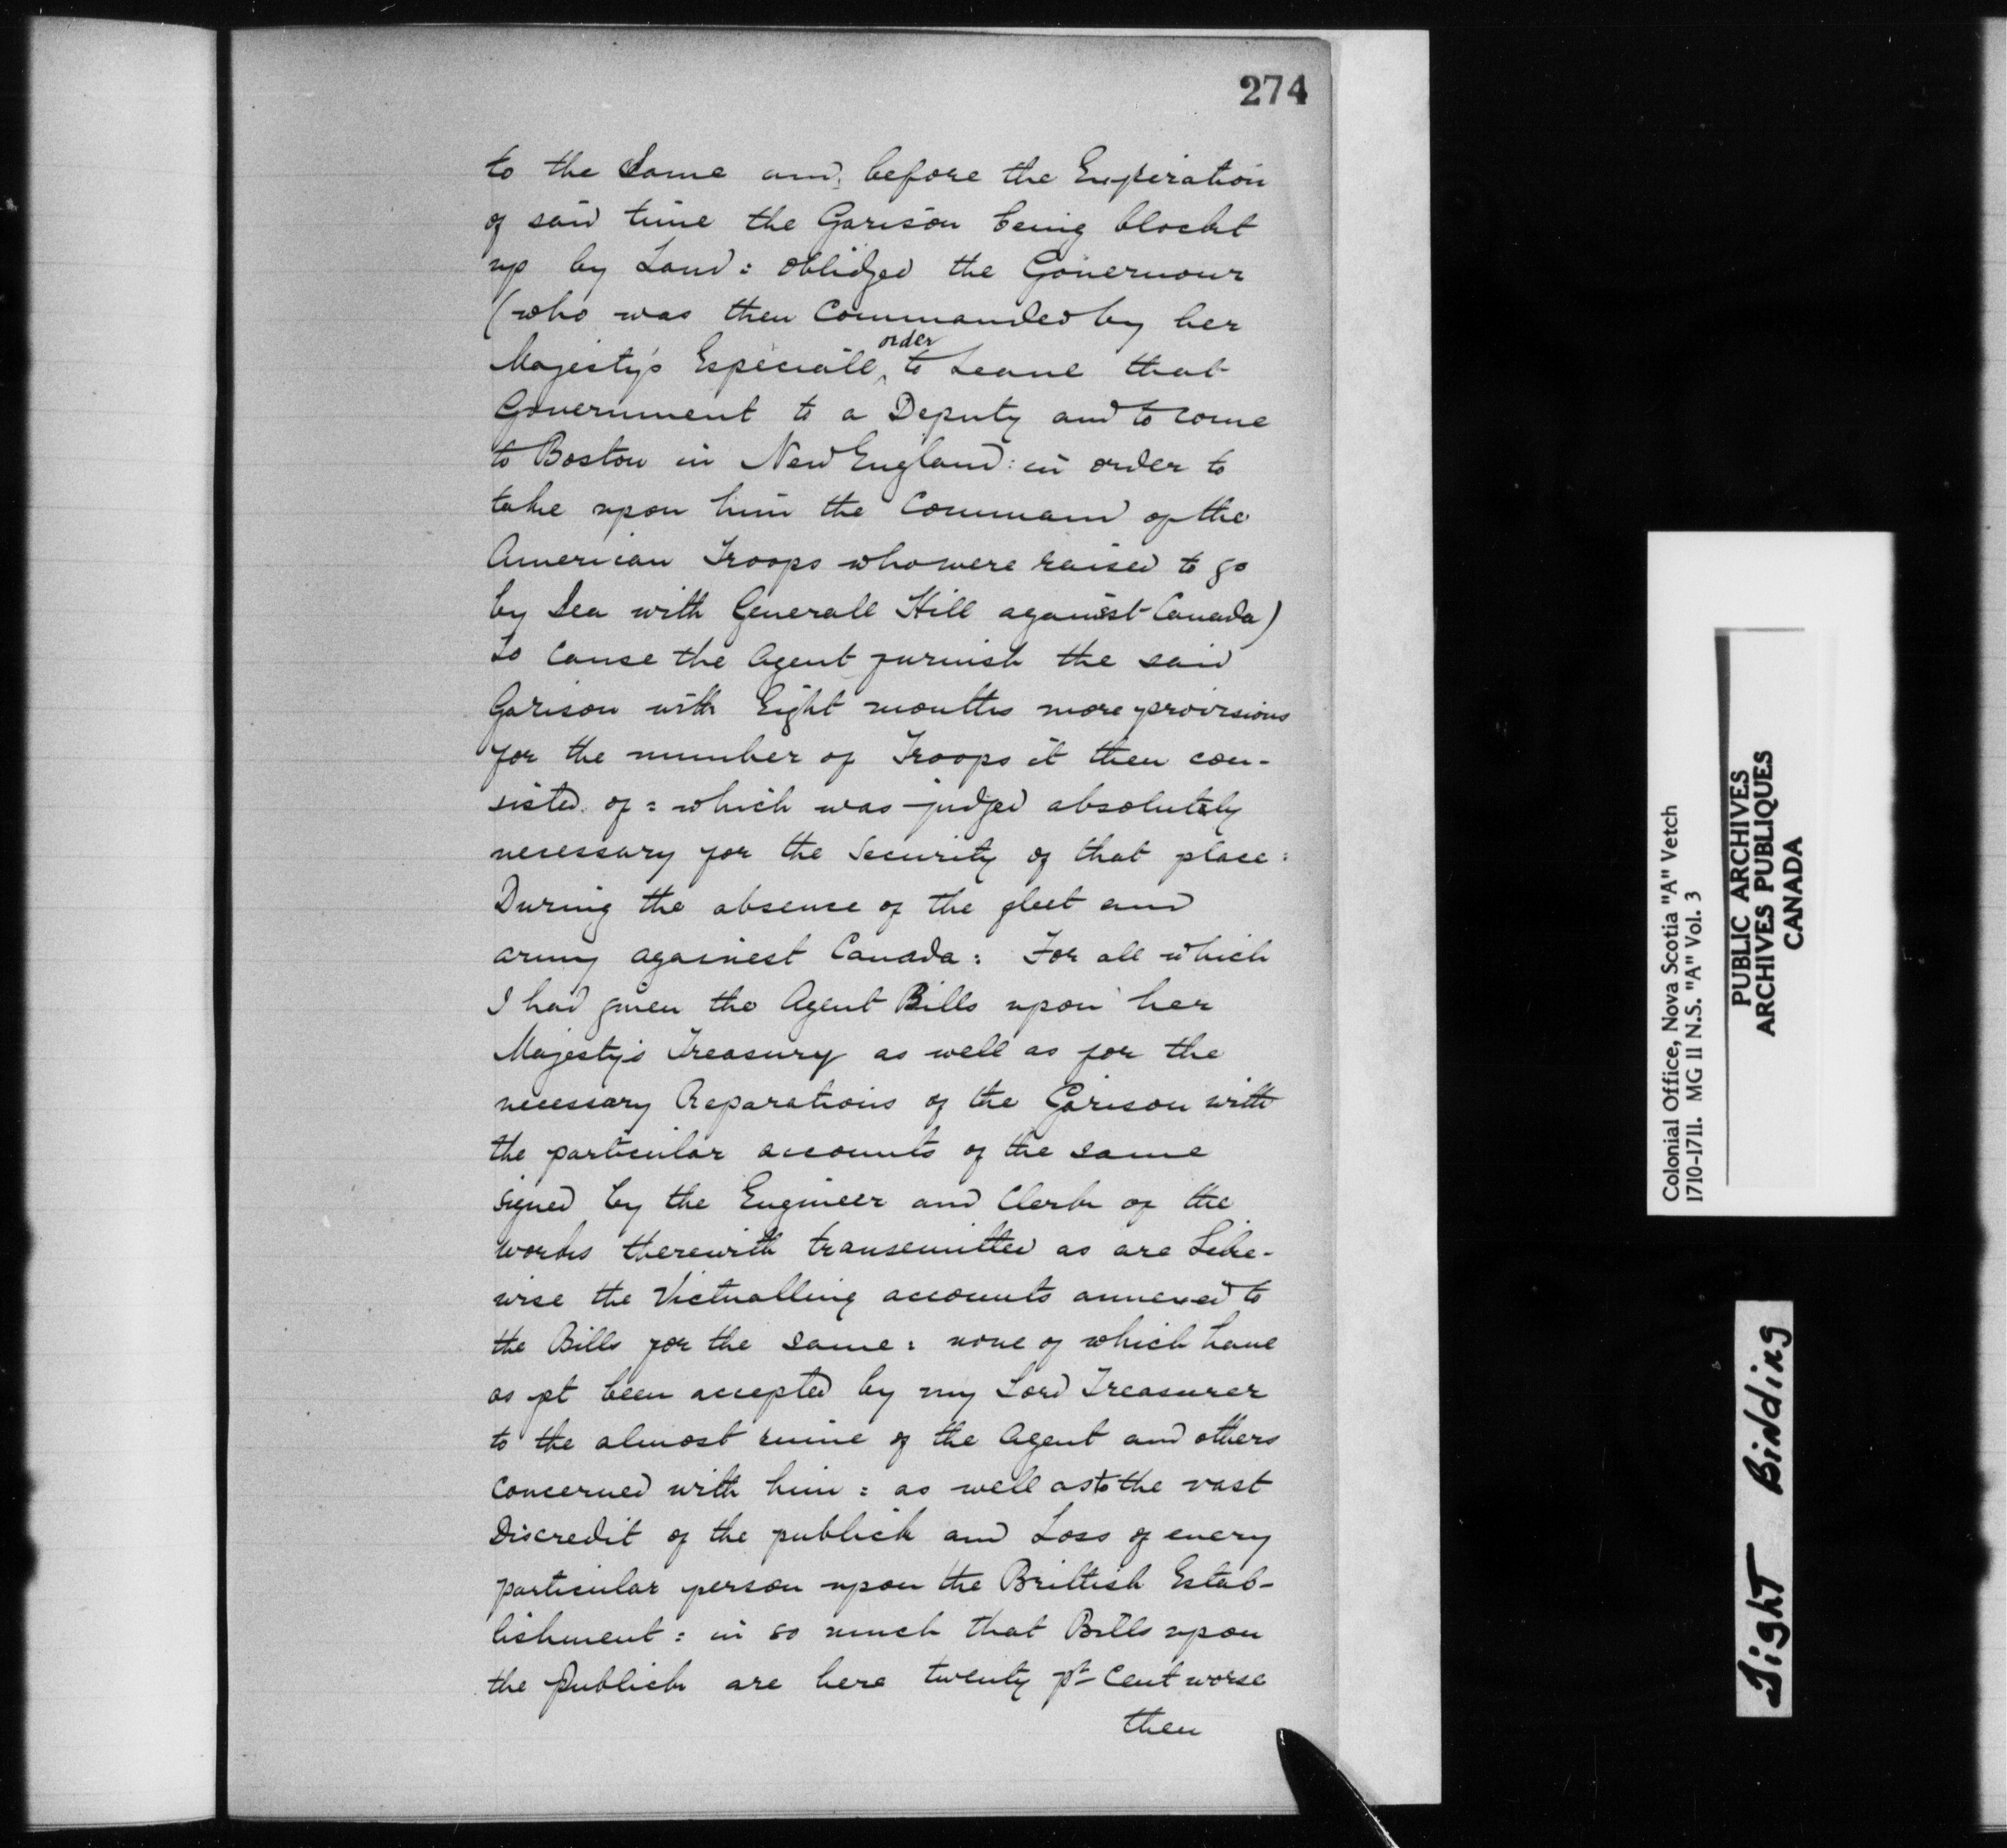 274
to the Same and, before the Expiration
of said time the Garison being blockt
up by Land: oblidged the Governour
(who was then Commanded by her
order
Majesty's Especiall ^ to Leave that
Government to a Deputy and to come
to Boston in New England: in order to
take upon him the Command of the
American Troops who were raised to go
by Sea with Generall Hill against Canada)
to Cause the Agent furnish the said
Garison with Eight months more provisions
for the number of Troops it then con-
sisted of: which was judged absolutely
necessary for the Security of that place:
During the absence of the fleet and
army against Canada: For all which
I had given the Agent Bills upon her
Majesty's Treasury as well as for the
necessary Reparations of the Garison with
the particular accounts of the same
signed by the Engineer and Clerk of the
works therewith transemitted as are Like-
wise the Victualling accounts annexed to
the Bills for the same: none of which have
as yet been accepted by my Lord Treasurer
to the almost ruine of the Agent and others
Concerned with him: as well as to the vast
Discredit of the publick and Loss of every
particular person upon the Brittish Estab-
lishment: in so much that Bills upon
the Publick are here twenty pr Cent worse
then
Colonial Office, Nova Scotia "A" Vetch
1710-1711. MG 11 N.S. "A" Vol. 3
PUBLIC ARCHIVES
ARCHIVES PUBLIQUES
CANADA
Tight Binding